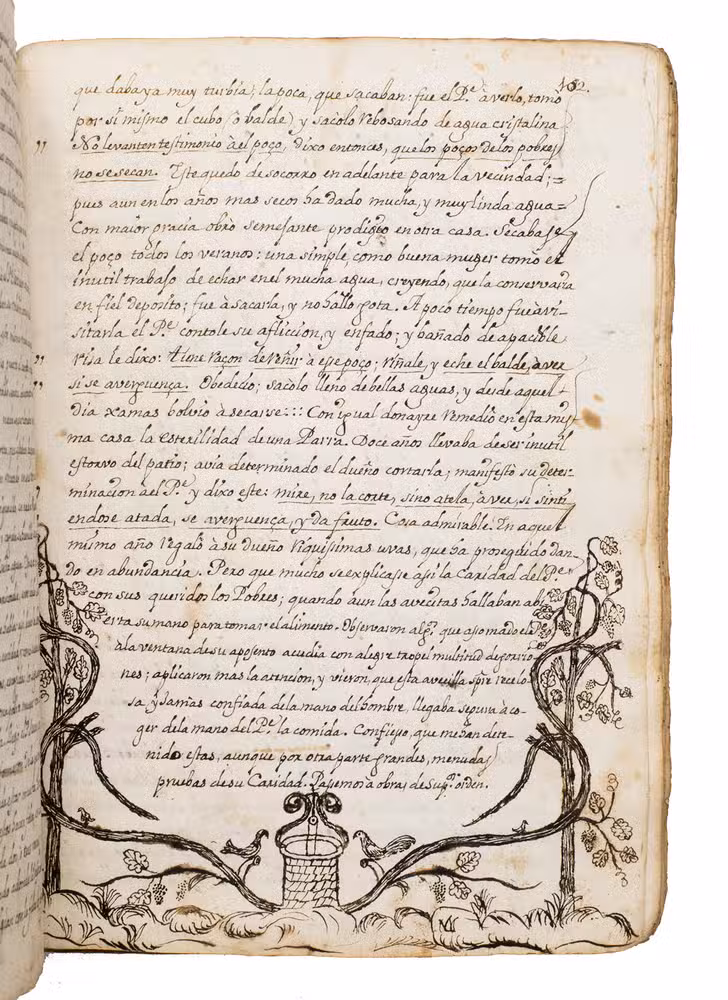 102.
que daba ya muy turbia, la poca, que sacaban: fue el P.e à verlo, tomò
por sí mismo el cubo (ò balde) y sacolo rebosando de agua cristalina
No levanten testimonio àel poço, dixo entonces, que los poços de los pobres
no se secan. Este quedo de socorro en adelante para la vecindad; =
pues aun en los años mas secos ha dado mucha, y muy linda agua =
Con maior gracia obrò semejante prodigio en otra casa. Secabase
el poço todos los veranos: una simple, como buena muger tomò el
inutil trabajo de echar en el mucha agua, creyendo, que la conservaria
en fiel deposito; fue à sacarla, y no hallò gota. A poco tiempo fue à vi-
sitarla el P.e contole su aflicion, y enfado; y bañado de apacible
risa le dixo: tiene raçon de reñir à ese poço; riñale, y eche el balde, à ver
si se averguença. Obedeciò; sacolo lleno de bellas aguas, y desde aquel
dia xamas bolviò à secarse::: Con igual donayre remediò en esta mis
ma casa la esterilidad de una Parra. Doce años llevaba de ser inutil
estorvo del patio; avia determinado el dueño cortarla; manifestò su deter-
minacion àel P.e y dixo este: mire, no la corte, sino atela, à ver, si sinti
endose atada, se averguença, y da fruto. Cosa admirable! En aquel
mismo año regalò à su dueño riquissimas uvas, que ha proseguido dan-
do en abundancia. Pero que mucho se explicase asi la Caridad del P.e
con sus queridos los Pobres; quando aun las avecitas hallaban abi
erta su mano para tomar el alimento. Observaron al P.e que asomado
à la ventana de su aposento acudia con alegre tropel multitud de gorrio-
nes; aplicaron mas la atencion, y vieron, que esta avecilla spre recelo-
sa y jamas confiada de la mano del hombre, llegaba segura à co-
ger de la mano del P.e la comida. Confieso, que me han dete-
nido estas, aunque por otra parte grandes, menudas
pruebas de su Caridad. Pasemos à obras de sup.or orden.